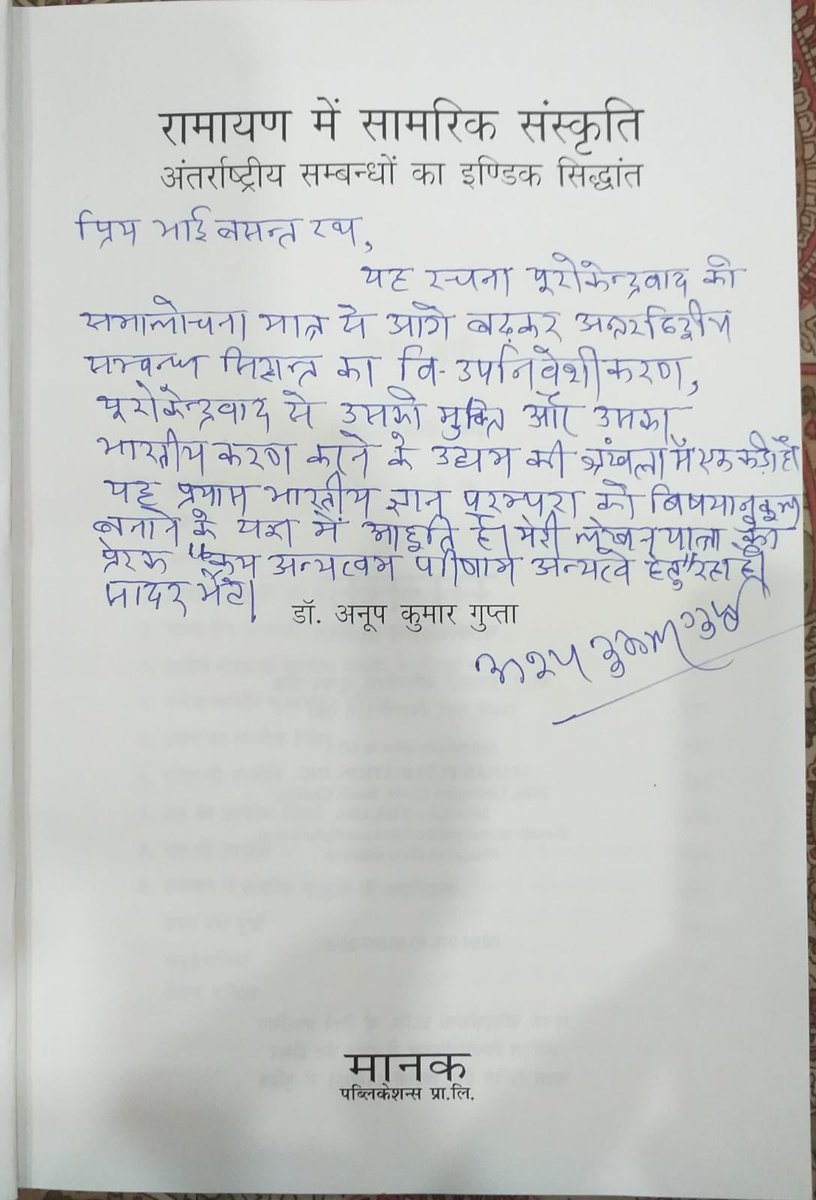 रामायण में सामरिक संस्कृति
अंतर्राष्ट्रीय सम्बन्धों का इण्डिक सिद्धांत
प्रिय भाई बसन्त रथ,
यह रचना यूरोकेन्द्रवाद की
समालोचना मात्र से आगे बढ़कर अन्तर्राष्ट्रीय
सम्बन्ध सिद्धान्त का वि-उपनिवेशीकरण,
यूरोकेन्द्रवाद से उसकी मुक्ति और उसका
भारतीयकरण करने के उद्यम की श्रृंखला में एक कड़ी है।
यह प्रयास भारतीय ज्ञान परम्परा को विषयानुकूल
बनाने के यज्ञ में आहुति है। मेरी लेखन यात्रा का
प्रेरक "क्रम अन्यत्वम परिणाम अन्यत्वे हेतु" रहा है।
सादर भेंट।
डॉ. अनूप कुमार गुप्ता
अनूप कुमार गुप्ता
मानक
पब्लिकेशन्स प्रा.लि.